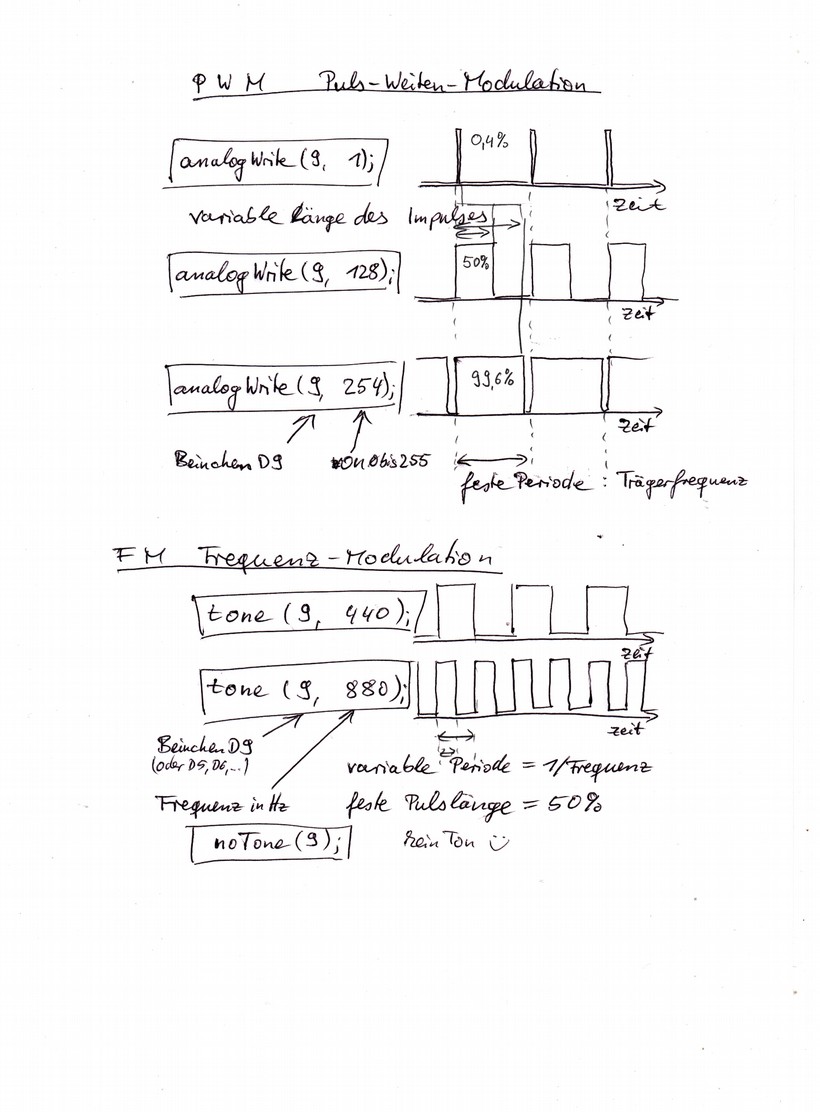 PWM Puls-Weiten-Modulation
analogWrite(9, 1);
0,4%
zeit
variable Länge des Impulses
analogWrite(9, 128);
50%
zeit
analogWrite(9, 254);
99,6%
zeit
Beinchen D9
von 0 bis 255
feste Periode : Trägerfrequenz
FM Frequenz-Modulation
tone (9, 440);
zeit
tone (9, 880);
zeit
Beinchen D9
(oder D5, D6,...)
variable Periode = 1/Frequenz
Frequenz in Hz
feste Pulslänge = 50%
noTone(9);
kein Ton